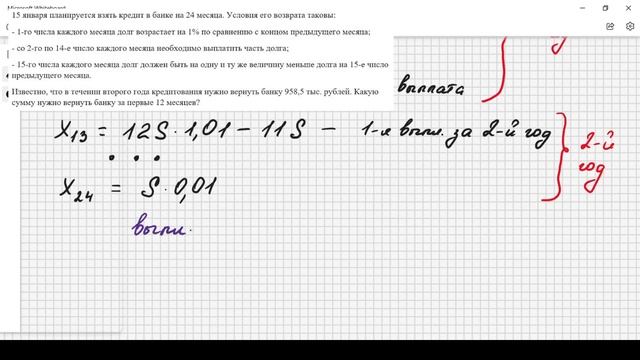 Microsoft Whiteboard
15 января планируется взять кредит в банке на 24 месяца. Условия его возврата таковы:
- 1-го числа каждого месяца долг возрастает на 1% по сравнению с концом предыдущего месяца;
- со 2-го по 14-е число каждого месяца необходимо выплатить часть долга;
- 15-го числа каждого месяца долг должен быть на одну и ту же величину меньше долга на 15-е число
предыдущего месяца.
Известно, что в течении второго года кредитования нужно вернуть банку 958,5 тыс. рублей. Какую
сумму нужно вернуть банку за первые 12 месяцев?
год
выплата
X13 = 12S · 1,01 − 11S − 1-я выпл. за 2-й год
• • •
2-й
год
X24 = S · 0,01
выпл.